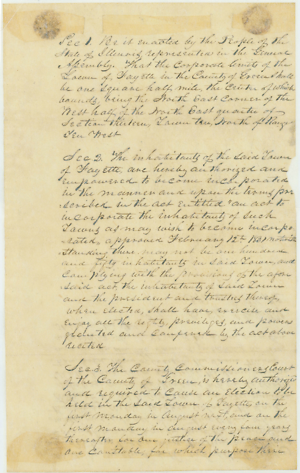 Sec 1. Be it enacted by the People of the
State of Illinois represented in the General
Assembly. That the Corporate limits of the
Town of Fayette in the County of Green shall
be one Square half mile, the Center of which
bounds, being the North East Corner of the
West half of the North East quarter of
Section thirteen, Town ten, North of Range
Ten West
Sec 2. The inhabitants of the said Town
of Fayette, are hereby authorized and
empowered to become incorporated
in the manner and upon the terms pre
scribed in the act entitled "an act to
incorporate the inhabitants of such
Towns as may wish to become incorpo
rated, approved February 12th 1831
standing there may not be one hundred
and fifty inhabitants in said Town, and
complying with the provisions of the afore
said act, the inhabitants of said Town
and the president and trustees thereof,
when elected, shall have, exercise and
enjoy all the rights, privileges, and powers
granted and conferred by the act above
recited
Sec 3. The County Commissioners court
of the County of Green, is hereby authorized
and required to cause an election to be
held in the said Town of Fayette on the
first Monday in August next, and on the
first Monday in August every four years
thereafter for one justice of the peace and
one Constable, for which purpose there